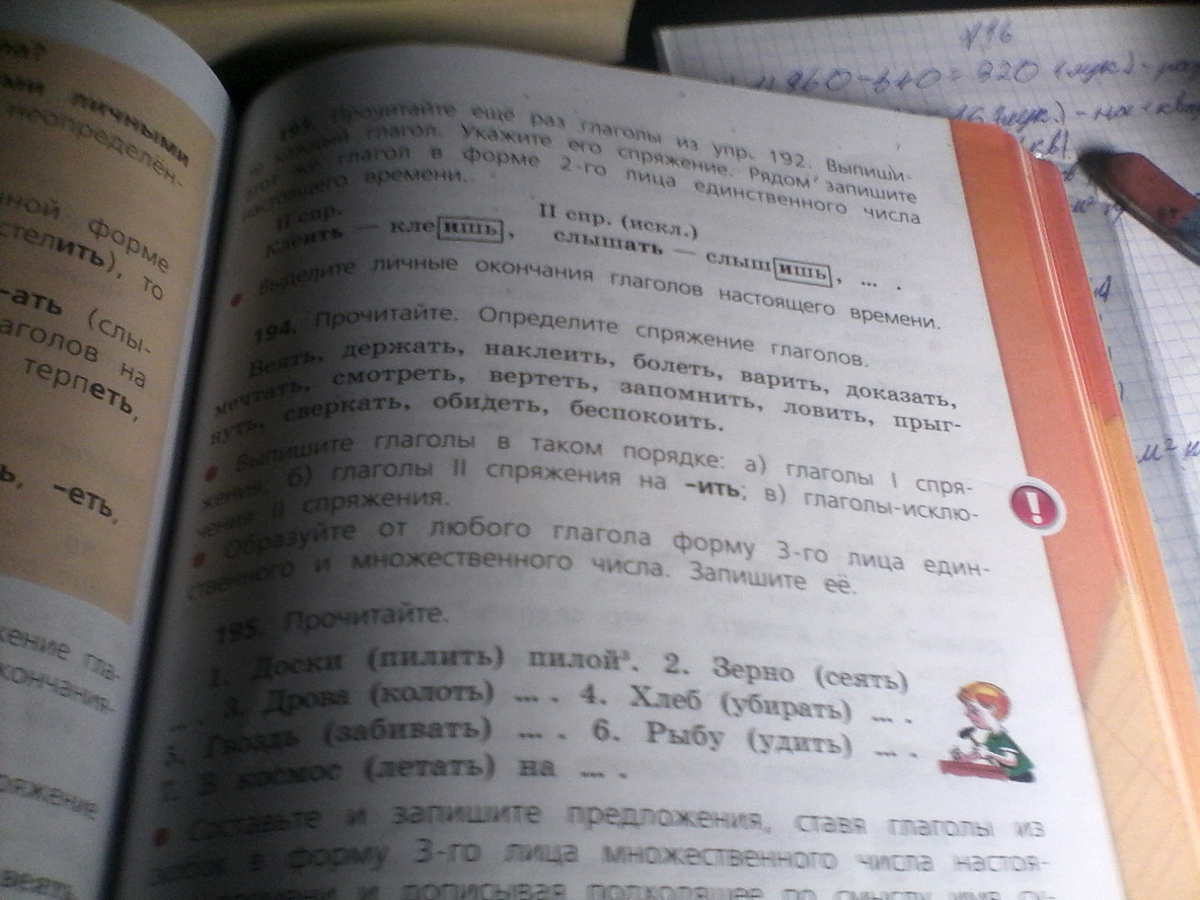 ыми личными
неопределён-
ной форме
стелить), то
-ать (слы-
аголов на
терпеть,
ь, -еть,
жение гла-
кончания-
ряжение
веять,
193. Прочитайте ещё раз глаголы из упр. 192. Выпиши-
те каждый глагол. Укажите его спряжение. Рядом запишите
этот же глагол в форме 2-го лица единственного числа
настоящего времени.
II спр. II спр. (искл.)
клеить — клеишь, слышать — слышишь, ... .
• Выделите личные окончания глаголов настоящего времени.
194. Прочитайте. Определите спряжение глаголов.
Веять, держать, наклеить, болеть, варить, доказать,
мечтать, смотреть, вертеть, запомнить, ловить, прыг-
нуть, сверкать, обидеть, беспокоить.
• Выпишите глаголы в таком порядке: а) глаголы I спря-
жения; б) глаголы II спряжения на -ить; в) глаголы-исклю-
чения II спряжения.
• Образуйте от любого глагола форму 3-го лица един-
ственного и множественного числа. Запишите её.
195. Прочитайте.
1. Доски (пилить) пилой³. 2. Зерно (сеять)
... . 3. Дрова (колоть) ... . 4. Хлеб (убирать) ... .
5. Гвоздь (забивать) ... . 6. Рыбу (удить) ... .
7. В космос (летать) на ... .
• Составьте и запишите предложения, ставя глаголы из
скобок в форму 3-го лица множественного числа настоя-
и дописывая подходящее по смыслу имя су-
!
№16
960-640=320 (лук.)